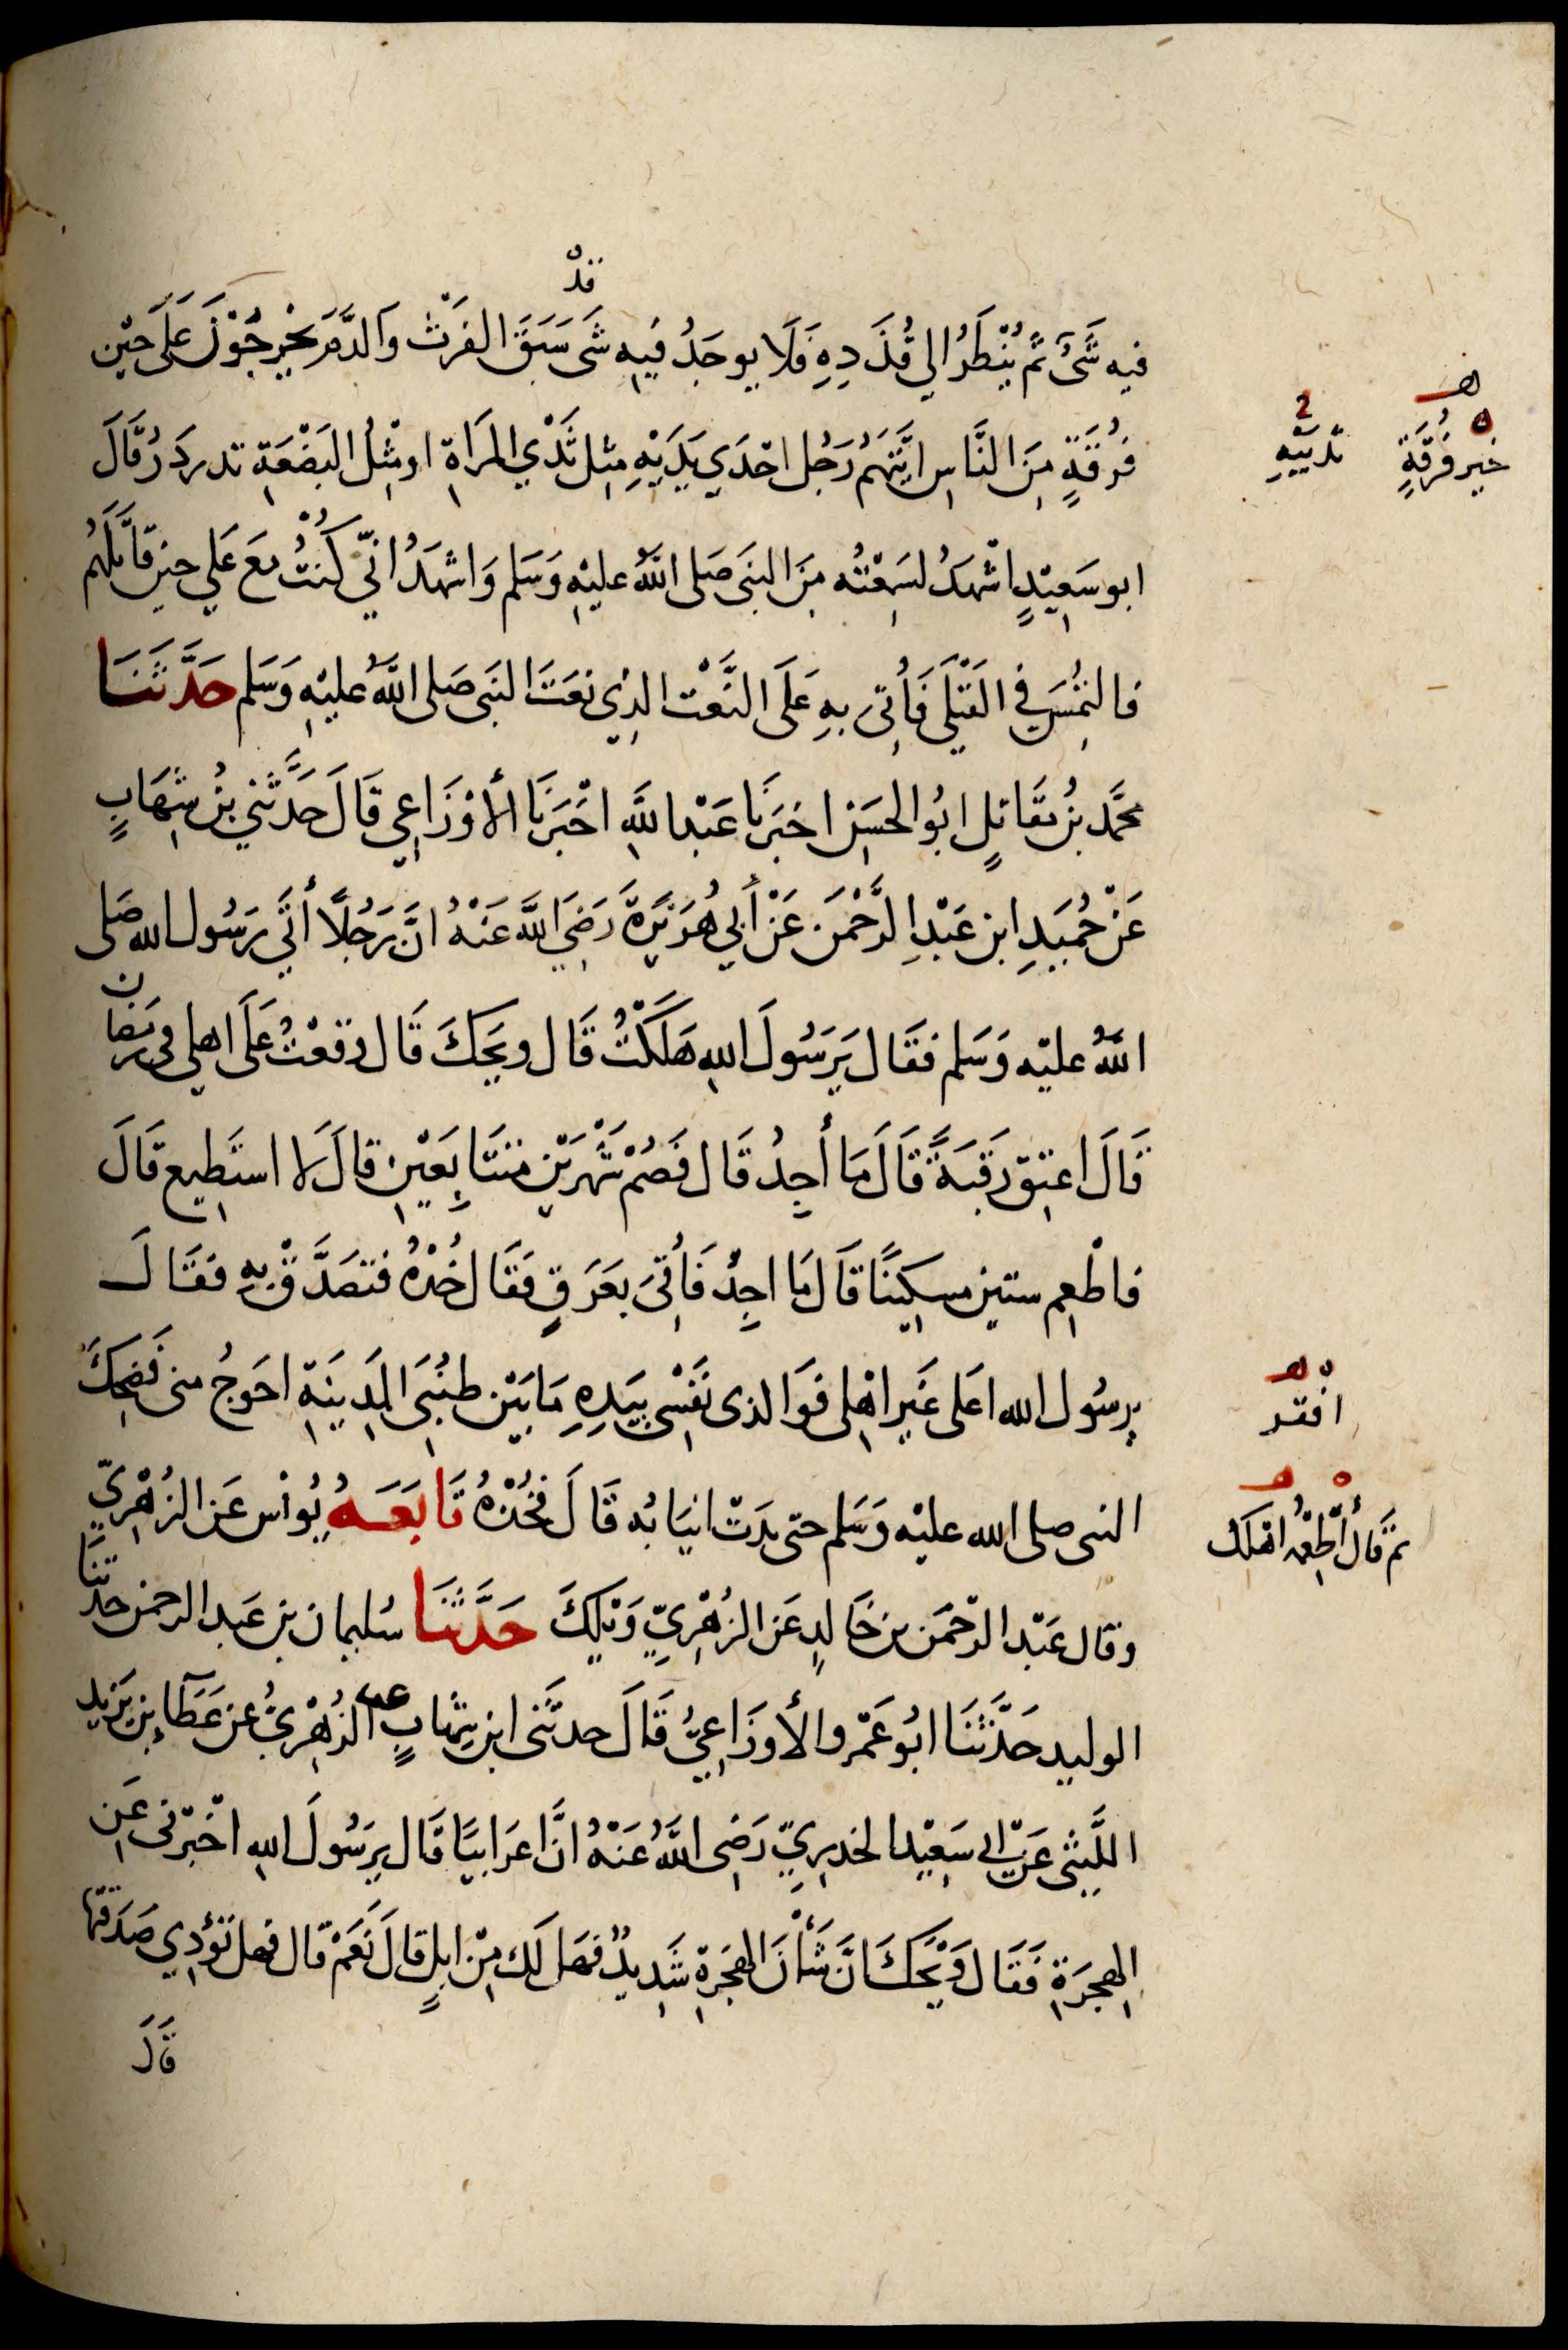 قَدْ
فيه شَىْءٌ ثُمَّ يُنْظَرُ الي قُذَذِهِ فَلَا يوجَدُ فيهِ شَىْ سَبَقَ الفَرْثَ وَالدَّمَ يَخْرِجُوْنَ عَلَى حِيْنِ
فُرْقَةٍ مِنَ النَّاسِ ايَتَهُم رَجُل احْدَي يَدَيْهِ مِثل ثَدْيِ المَرَاةِ اومِثْلُ البَضْعَةِ تدردَرُ قَالَ
خَيرِ فُرْقَةٍ
ثَدْيَيْهِ
ابو سَعِيْدٍ اشْهَدُ لَسَمِعْتُه مِنَ النبَى صَلى اللّهُ عليْهِ وَسَلم وَاشهَدُ انّي كُنْتُ مَعَ عَلي حِينَ قَاتَلَهُم
فالتُمِسَ فِي القَتْلَى فَأُتِىَ بهِ عَلَى النَّعْتِ الذِي نعَتَ النبَى صَلى اللَّهُ عليْهِ وَسَلم حَدَّثَنَا
محمَّد بنُ مقَاتلٍ ابُو الحسَنِ اخبَرنَا عَبْد اللَّهِ اخْبَرنَا الأوْزَاعِي قَالَ حَدَّثَنِي بنُ شِهَابٍ
عَنْ حُمَيدِ ابنِ عَبْدِ الرَّحْمَنِ عَنْ أَبِي هُرَيْرَةَ رَضِيَ اللَّه عَنْهُ انَّ رَجُلًا أتَي رَسُول الله صَلى
اللَّهُ عليْه وَسَلم فَقَال يَرَسُولَ اللهِ هَلَكْتُ قَال ويحَكَ قَال وقعْتُ عَلَى اهلي في رمَضان
قَالَ اعتِقْ رَقَبَةً قَالَ مَا أَجِدُ قَال فَصُمْ شَهْرَيْنِ متَتَابِعَيْنِ قالَ لَا استَطِيع قَالَ
فاطْعِم ستين مسكِينًا قَالَ مَا اجِدُ فَأُتِىَ بعَرَقٍ فَقَال خُذْهُ فتصَدَّقْ بِهِ فقَالَ
يرسُول الله اعَلى غَيرِ اهْلِى فوَالذى نَفْسِى بيَدِهِ مَا بَيْنَ طنُبَىِ المَدِينَةِ احَوجُ منى فَضحِكَ
افْقَر
النبى صلى الله عليْه وَسَلم حتى بدَتْ انيَابُه قَالَ خُذْهُ تَابَعَهُ يُونُس عَن الزُهْرِيّ
ثمَّ قَالَ أَطْعِمْهُ اهْلَكَ
وقال عَبْد الرّحْمَن بن خَالِدٍ عَن الزهْرِيِّ وَيْلكَ حَدَّثَنَا سُليمان بن عَبد الرحمن حدثَنَا
الوليد حَدَّثَنَا ابُو عَمْرو الأَوزَاعِيُّ قَالَ حدثَنى ابن شِهَابٍ الزهْرِيُّ عن عَطَآءِ بْنِ يَزيد
اللَّيْثِى عَنْ ابى سَعِيْد الخدرِيّ رَضِى اللَّهُ عَنْهُ انَّ اعرَابيًا قَال يرَسُولَ اللهِ اخْبِرْنى عَنِ
الهِجرَةِ فَقَال وَيْحَكَ انَّ شَأْنَ الهِجرَةِ شَدِيدٌ فهَل لَك مِنْ ابِلٍ قَالَ نَعَمْ قال فهل تؤَدِي صَدَقتهَا
قَالَ